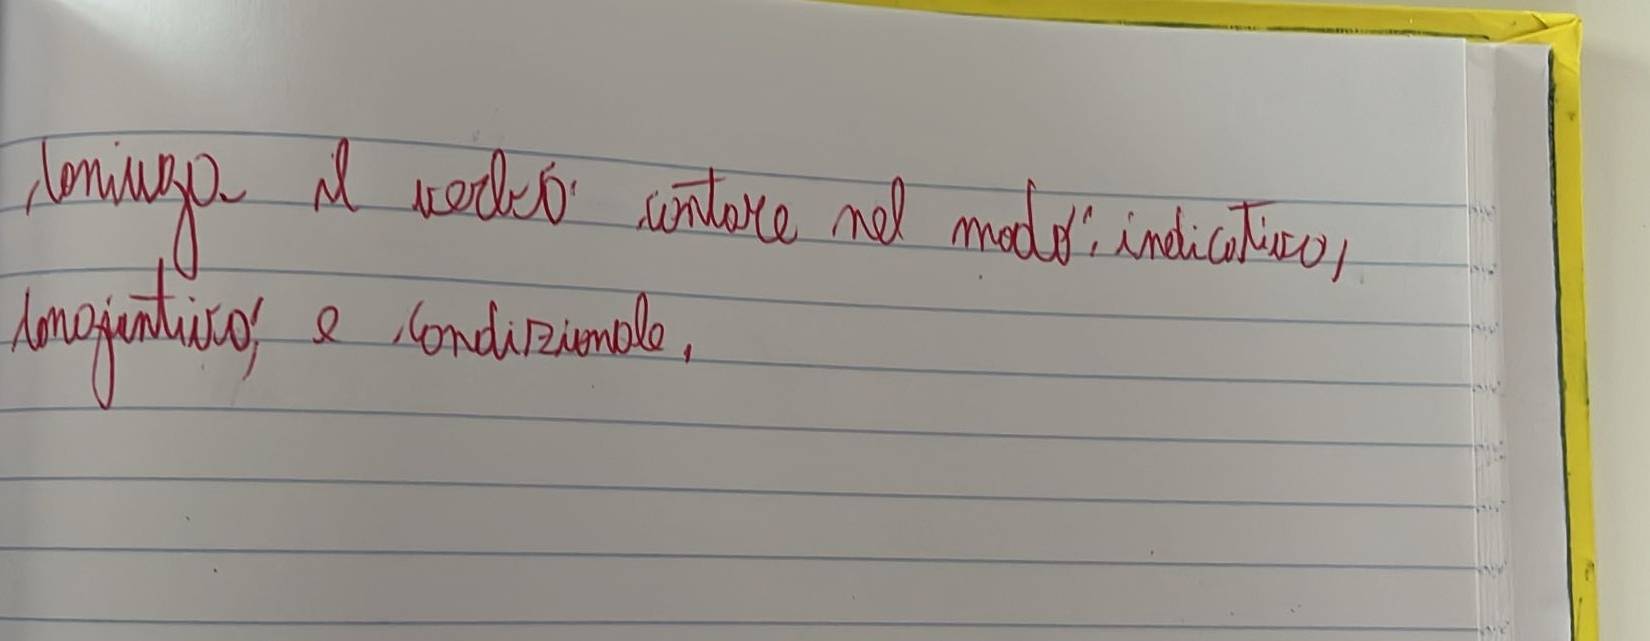 Coniuga il verbo cantare nel modo: indicativo,
congiuntivo, e condizionale.